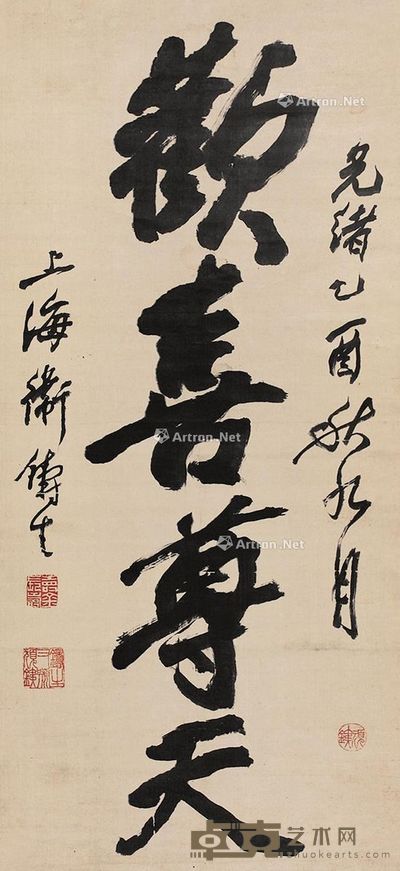 光緒乙酉秋九月
歡喜尊天
上海衛鑄生
Artron.Net
Artron.Net
Artron.Net
卓克艺术网
zhuokearts.com